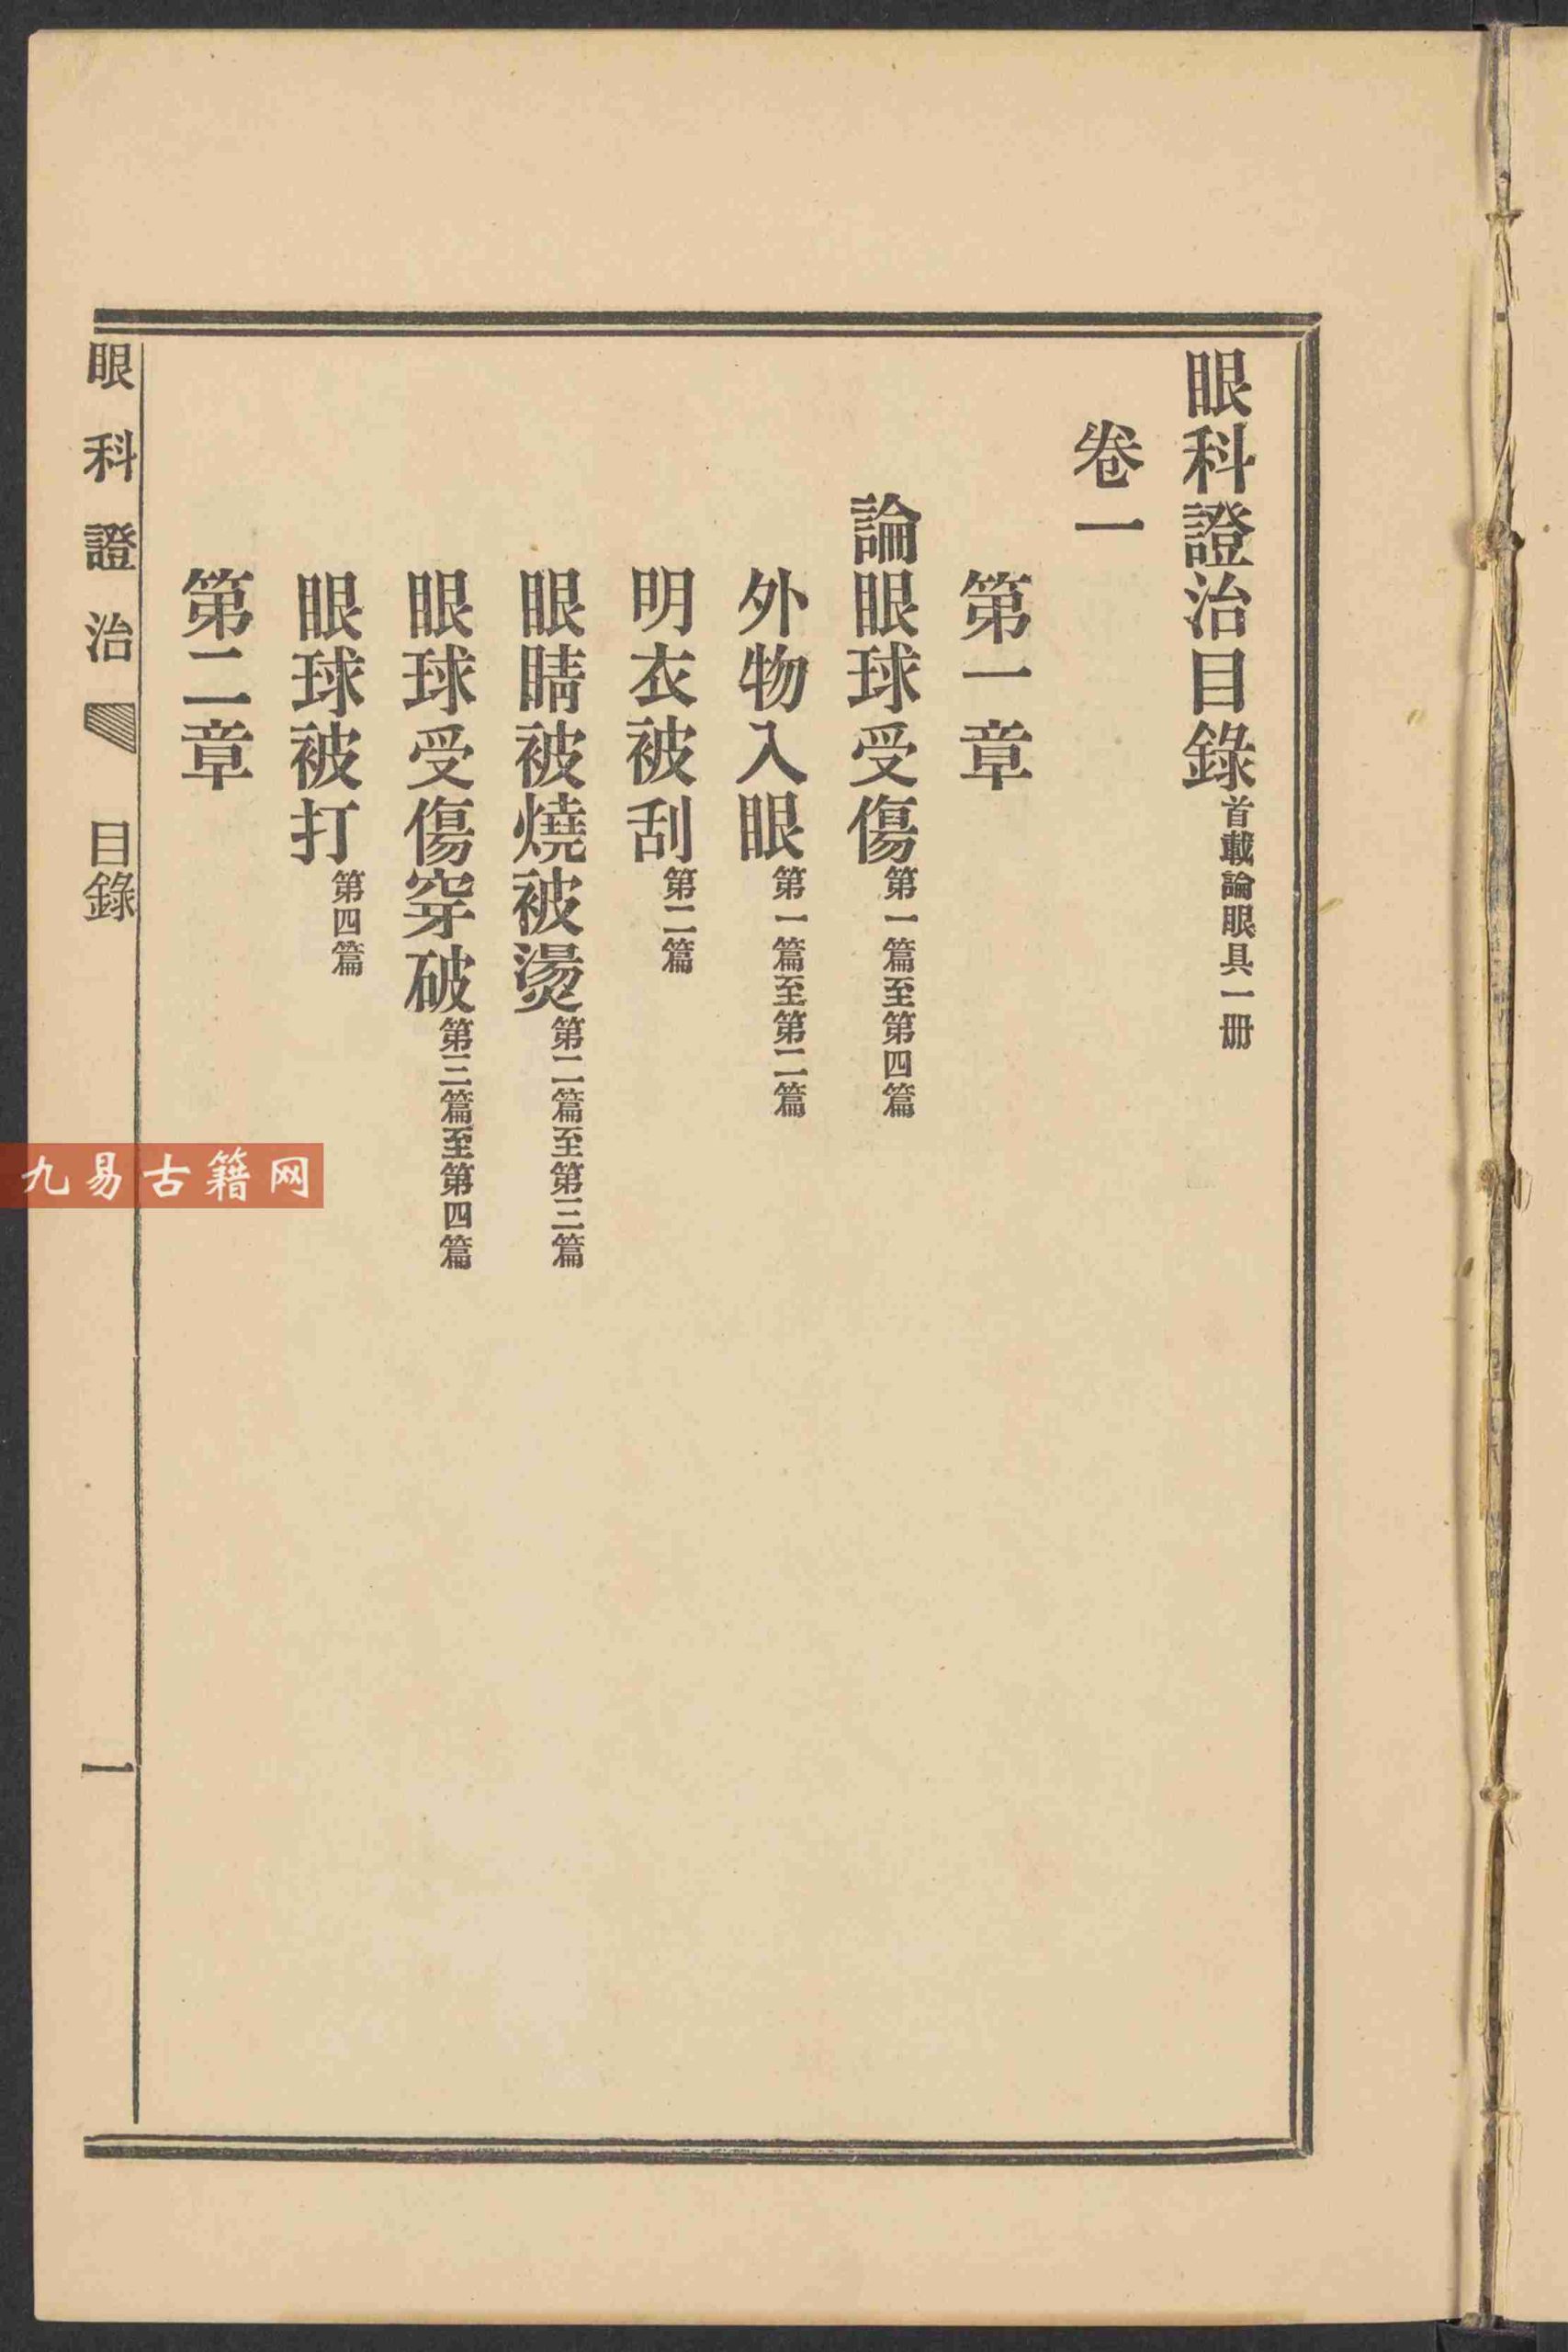 眼科證治目錄首載論眼具一册
卷一
第一章
論眼球受傷第一篇至第四篇
外物入眼第一篇至第二篇
明衣被刮第二篇
眼睛被燒被燙第二篇至第三篇
眼球受傷穿破第三篇至第四篇
眼球被打第四篇
第二章
眼科證治 目錄 一
九易古籍网